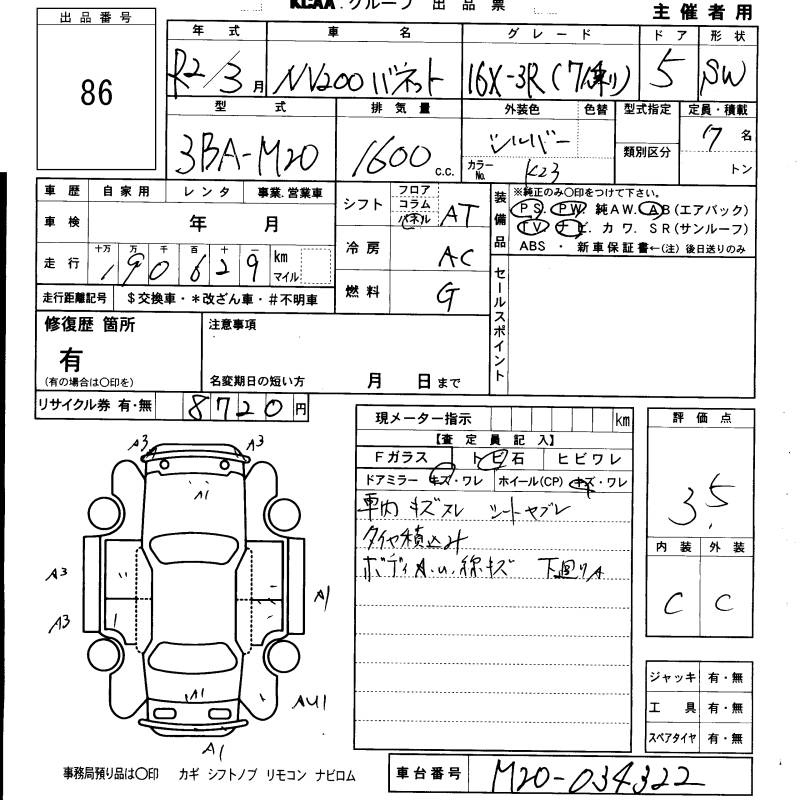 KCAA グループ 出品票
主催者用
出品番号
86
年式 車名 グレード ドア 形状
R2/3月 NV200 バネット 16X-3R(7人乗り) 5 SW
型式 排気量 外装色 色替 型式指定 定員・積載
3BA-M20 1600 c.c. シルバー 7名
カラーNo. K23 類別区分 トン
車歴 自家用 レンタ 事業.営業車
車検 年 月
走行 十万 万 千 百 十 一
190629 km マイル
走行距離記号 $交換車・*改ざん車・#不明車
シフト フロア コラム パネル AT
冷房 AC
燃料 G
装備品 ※純正のみ〇印をつけて下さい。
PS. PW. 純AW. AB(エアバック)
TV ナビ. カワ. SR(サンルーフ)
ABS ・ 新車保証書←(注)後日送りのみ
セールスポイント
修復歴 箇所
有
(有の場合は〇印を)
注意事項
名変期日の短い方 月 日まで
リサイクル券 有・無 8720円
現メーター指示 km
【査定員記入】
Fガラス トビ石 ヒビワレ
ドアミラー キズ・ワレ ホイール(CP) キズ・ワレ
車内キズスレ シートヤブレ
タイヤ積込み
ボディA.u.線キズ 下廻りA
評価点
3.5
内装 外装
C C
A3 A3
A1
A3
A3
A1
A1
AU1
A1
ジャッキ 有・無
工具 有・無
スペアタイヤ 有・無
事務局預り品は〇印 カギ シフトノブ リモコン ナビロム
車台番号 M20-034322